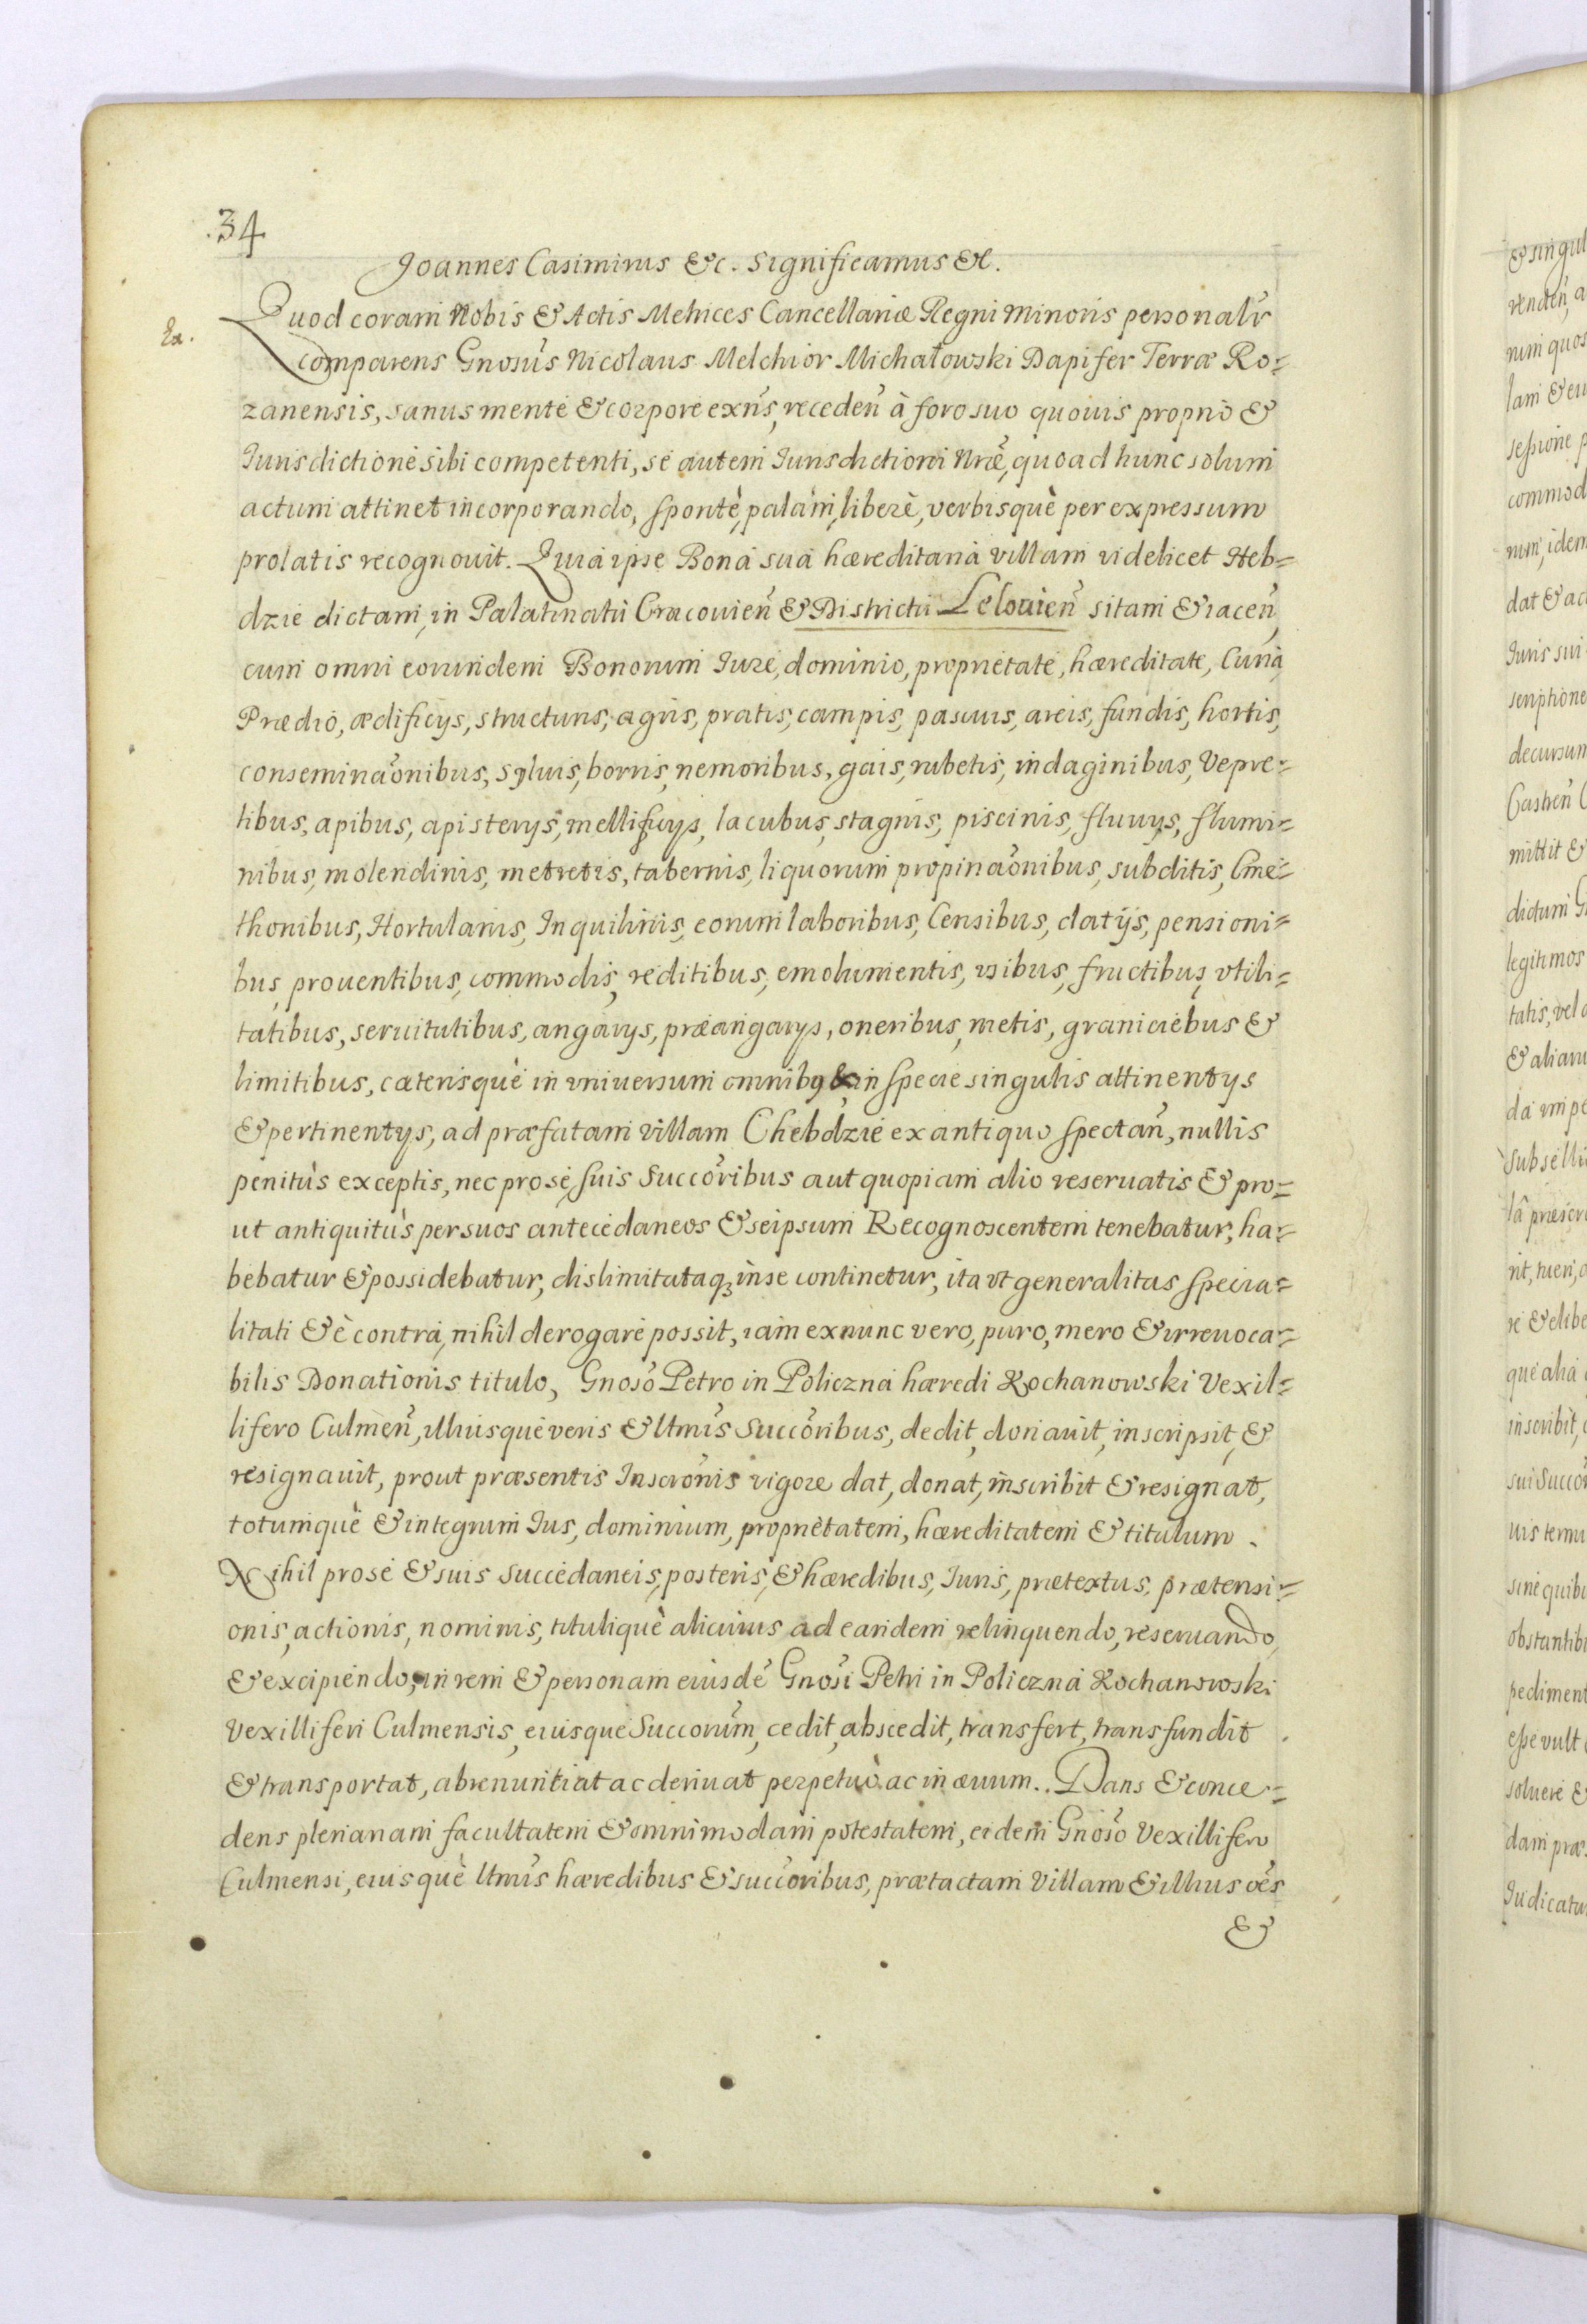 34
Joannes Casimirus &c. significamus &c.
Ex.
Quod coram Nobis & Actis Metrices Cancellariæ Regni Minoris personalr̃
comparens Gnosus Nicolaus Melchior Michałowski Dapifer Terræ Ro=
zanensis, sanus mente & corpore exñs, receden̄ à foro suo quouis proprio &
Jurisdictione sibi competenti, se autem Jurisdictioni Nræ, quoad hunc solum
actum attinet incorporando, sponte, palam, liberè, verbisquè per expressum
prolatis recognouit. Quia ipse Bona sua hæreditaria villam videlicet Heb=
dzie dictam, in Palatinatu Cracouien̄ & Districtu Lelouien̄ sitam & iacen̄,
cum omni eorundem Bonorum Jure, dominio, proprietate, hæreditate, Curia,
Prædio, ædificys, structuris, agris, pratis, campis, pascuis, areis, fundis, hortis,
conseminaõnibus, syluis, borris, nemoribus, gais, rubetis, indaginibus, Vepre=
tibus, apibus, apisterys, mellificys, lacubus, stagnis, piscinis, fluuys, flumi=
nibus, molendinis, metretis, tabernis, liquorum propinaõnibus, subditis, Cme=
thonibus, Hortulanis, Inquilinis, eorum laboribus, Censibus, datijs, pensioni=
bus, prouentibus, commodis, reditibus, emolumentis, vsibus, fructibus, vtili=
tatibus, seruitutibus, angarys, præangarys, oneribus, metis, graniciebus &
limitibus, cæterisquè in vniuersum omnibq & in specie singulis attinentys
& pertinentys, ad præfatam villam Chebdzie ex antiquo spectan̄, nullis
penitùs exceptis, nec pro se, suis Succoribus aut quopiam alio reseruatis & pro=
ut antiquitùs per suos antecedaneos & seipsum Recognoscentem tenebatur, ha=
bebatur & possidebatur, dislimitataq3 in se continetur, ita vt generalitas specia=
litati & è contra, nihil derogare possit, iam exnunc vero, puro, mero & irreuoca=
bilis Donationis titulo, Gnoso Petro in Policzna hæredi Kochanowski Vexil=
lifero Culmen̄, illiusque veris & ltmis Succoribus, dedit, donauit, inscripsit, &
resignauit, prout præsentis Inscrõnis vigore dat, donat, inscribit & resignat,
totumquè & integrum Jus, dominium, proprietatem, hæreditatem & titulum.
Nihil pro se & suis succedaneis, posteris, & hæredibus, Juris, prætextus, prætensi=
onis, actionis, nominis, tituliquè alicuius ad eandem relinquendo, reseruando,
& excipiendo, in rem & personam eiusdẽ Gnosi Petri in Policzna Kochanowski
Vexilliferi Culmensis, eiusque Succorum, cedit, abscedit, transfert, transfundit
& transportat, abrenuntiat ac deriuat perpetuò ac in æuum. Dans & conce=
dens plenariam facultatem & omnimodam potestatem, eidem Gnoso Vexillifero
Culmensi, eiusquè ltmis hæredibus & succoribus, prætactam Villam & illius oẽs
&